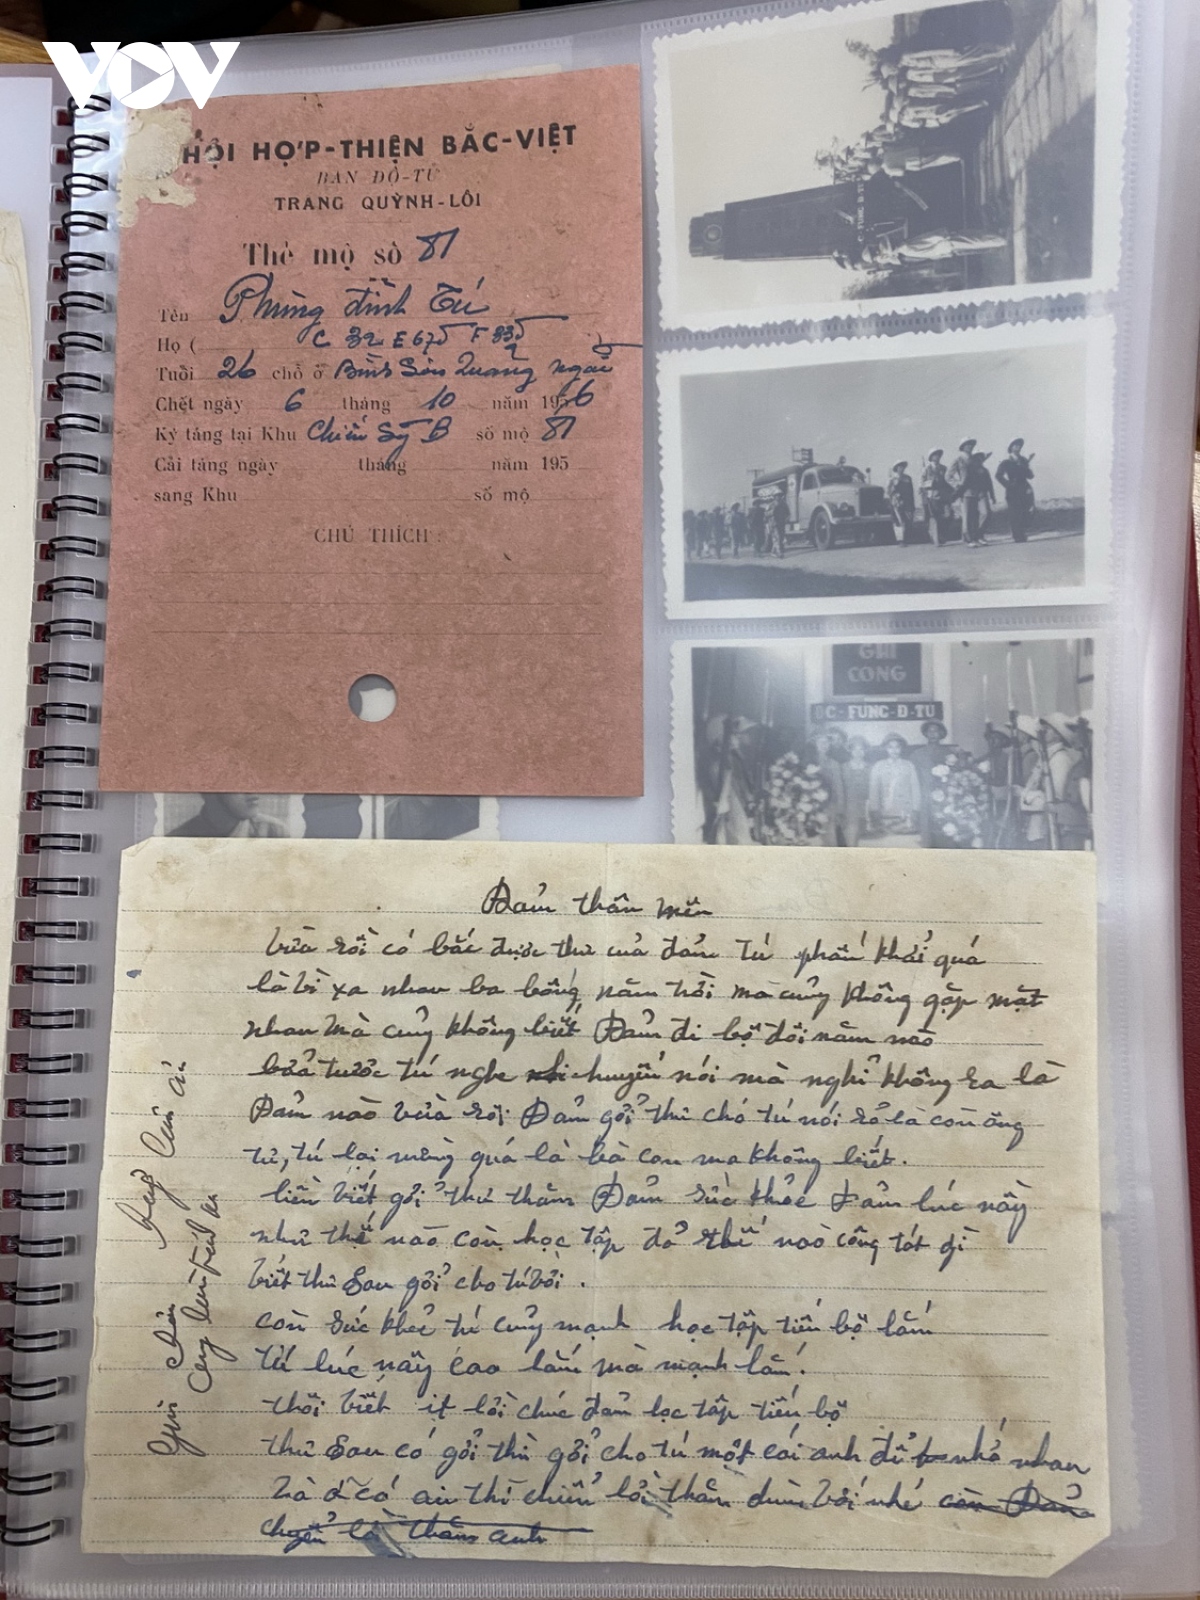 VOV
HỘI HỢP-THIỆN BẮC-VIỆT
BAN ĐÔ-TÙ
TRANG QUỲNH-LÔI
Thẻ mộ số 81
Tên Phùng đình Tú
Họ ( C 32 E 675 F 335 )
Tuổi 26 chỗ ở Bình Sơn Quảng ngãi
Chết ngày 6 tháng 10 năm 1956
Ký táng tại Khu Chiến Sỹ B số mộ 81
Cải táng ngày tháng năm 195
sang Khu số mộ
CHÚ THÍCH :
GHI
CONG
ĐC-FUNG-Đ-TU
Đảm thân mến
vừa rồi có bắc được thư của đảm tú phấn khải quá
là vì xa nhau ba bống năm trời mà cũng không gặp mặt
nhau mà cũng không biết Đảm đi bộ đôi năm nào
bửa trước tú nghe chuyến nói mà nghỉ không ra là
Đảm nào vừa rồi Đảm gởi thư cho tú nói rỏ là con ông
tư, tú lại mừng quá là bà con mà không biết.
liền viết gởi thư thăm Đảm sức khỏe Đảm lúc nầy
như thế nào còn học tập đả thế nào công tát gì
viết thư sau gởi cho tú với.
còn sức khỏe tú cũng mạnh học tập tiến bộ lắm
Tú lúc nầy cao lắm mà mạnh lắm.
thôi viết it lời chúc đảm học tập tiến bộ
thư sau có gởi thì gởi cho tú một cái anh để nhớ nhau
và ở có ai thì chiển lời thăm dùm với nhé còn Đảm
chyển là thăm anh